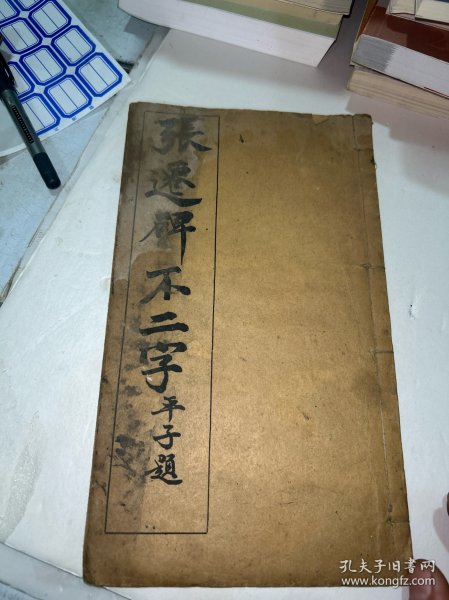 張遷碑不二字
平子題
孔夫子旧书网
www.kongfz.com